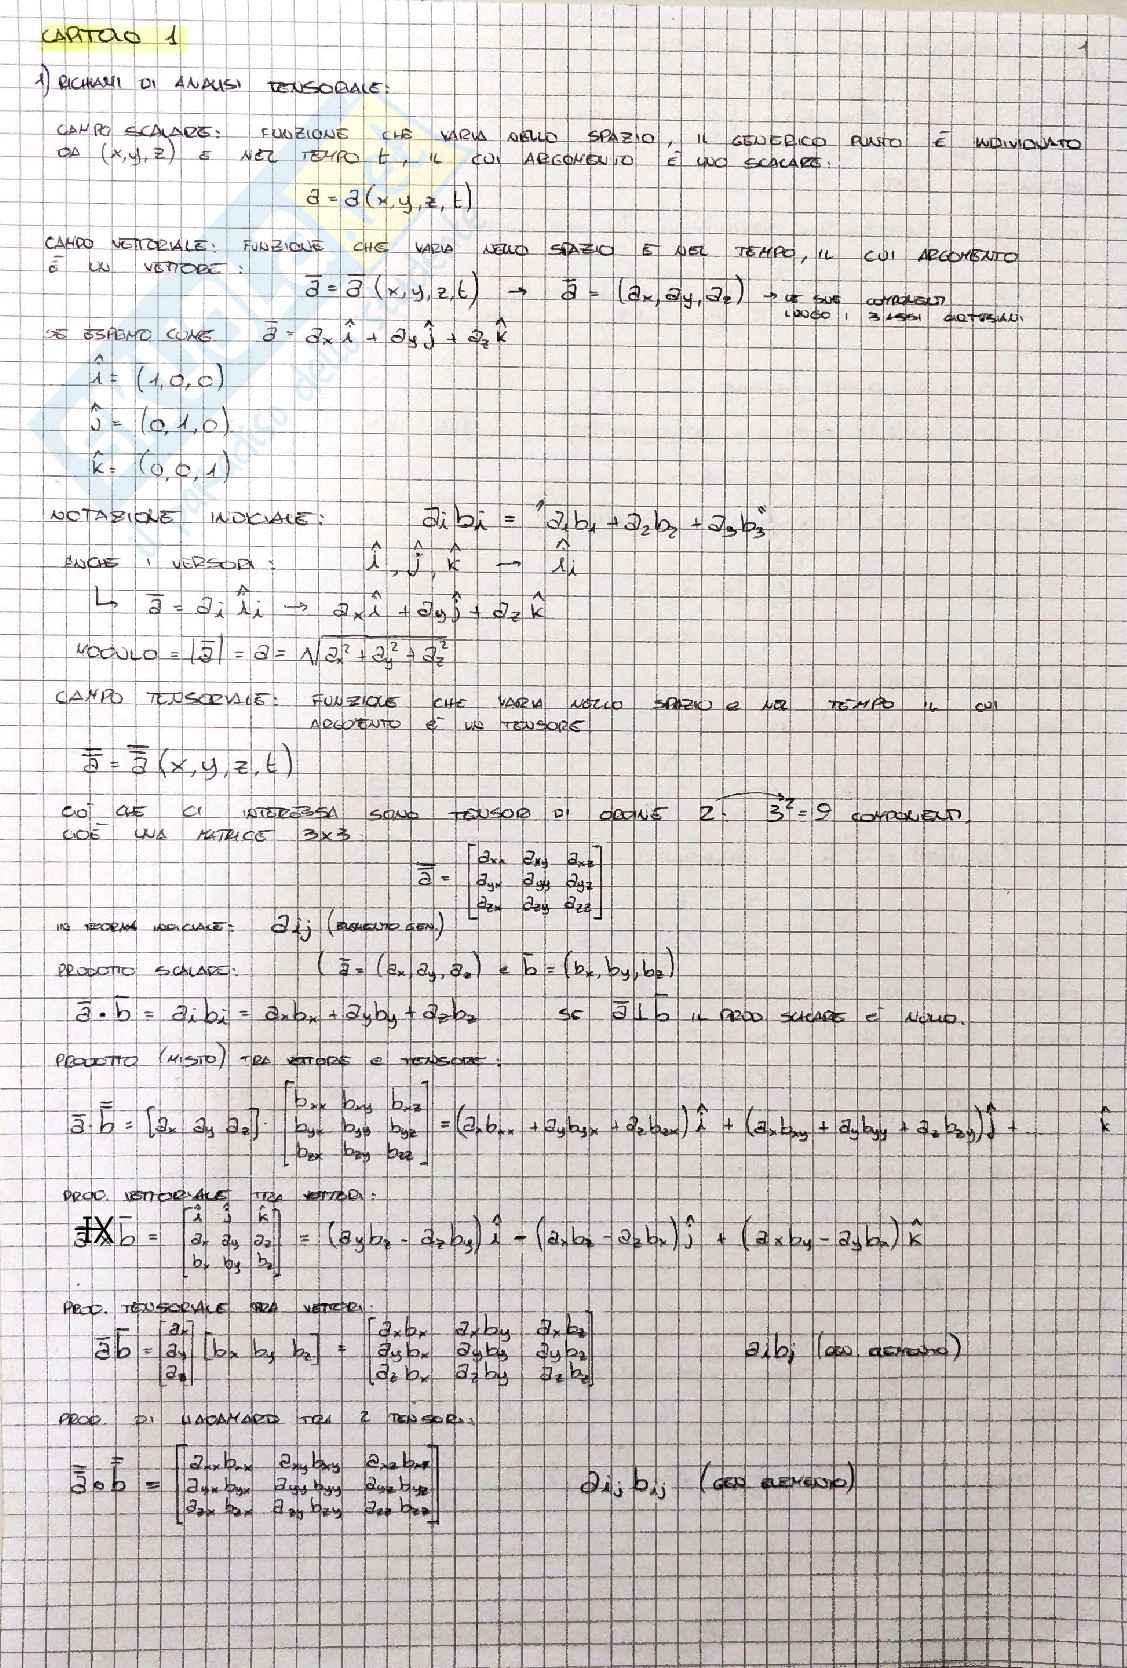 CAPITOLO 1
1
1) RICHIAMI DI ANALISI TENSORIALE:
CAMPO SCALARE: FUNZIONE CHE VARIA NELLO SPAZIO, IL GENERICO PUNTO È INDIVIDUATO
DA (x,y,z) E NEL TEMPO t, IL CUI ARGOMENTO È UNO SCALARE.
a = a(x,y,z,t)
CAMPO VETTORIALE: FUNZIONE CHE VARIA NELLO SPAZIO E NEL TEMPO, IL CUI ARGOMENTO
È UN VETTORE:
a̅ = a̅(x,y,z,t) → a̅ = (ax, ay, az) → LE SUE COMPONENTI
LUNGO I 3 ASSI CARTESIANI
SE ESPRIMO COME a̅ = ax î + ay ĵ + az k̂
î = (1,0,0)
ĵ = (0,1,0)
k̂ = (0,0,1)
NOTAZIONE INDICIALE: ai bi = "a1b1 + a2b2 + a3b3"
ANCHE I VERSORI: î, ĵ, k̂ → îi
↳ a̅ = ai îi → ax î + ay ĵ + az k̂
MODULO = |a̅| = a = √(ax² + ay² + az²)
CAMPO TENSORIALE: FUNZIONE CHE VARIA NELLO SPAZIO E NEL TEMPO IL CUI
ARGOMENTO È UN TENSORE
a̿ = a̿(x,y,z,t)
CIÒ CHE CI INTERESSA SONO TENSORI DI ORDINE 2: 3² = 9 COMPONENTI,
CIOÈ UNA MATRICE 3x3
a̿ = [axx axy axz
ayx ayy ayz
azx azy azz]
IN FORMA INDICIALE: aij (ELEMENTO GEN.)
PRODOTTO SCALARE: ( a̅ = (ax, ay, az) e b̅ = (bx, by, bz)
a̅ · b̅ = ai bi = axbx + ayby + azbz SE a̅ ⊥ b̅ IL PROD SCALARE È NULLO.
PRODOTTO (MISTO) TRA VETTORE E TENSORE:
a̅ · b̿ = [ax ay az] · [bxx bxy bxz
byx byy byz
bzx bzy bzz] = (axbxx + aybyx + azbzx) î + (axbxy + aybyy + azbzy) ĵ + ... k̂
PROD. VETTORIALE TRA VETTORI:
a̅ X b̅ = [î ĵ k̂
ax ay az
bx by bz] = (aybz - azby) î - (axbz - azbx) ĵ + (axby - aybx) k̂
PROD. TENSORIALE TRA VETTORI:
a̅b̅ = [ax
ay
az] [bx by bz] = [axbx axby axbz
aybx ayby aybz
azbx azby azbz] aibj (GEN. ELEMENTO)
PROD. DI HADAMARD TRA 2 TENSORI:
a̿ ∘ b̿ = [axxbxx axybxy axzbxz
ayxbyx ayybyy ayzbyz
azxbzx azybzy azzbzz] aij bij (GEN ELEMENTO)